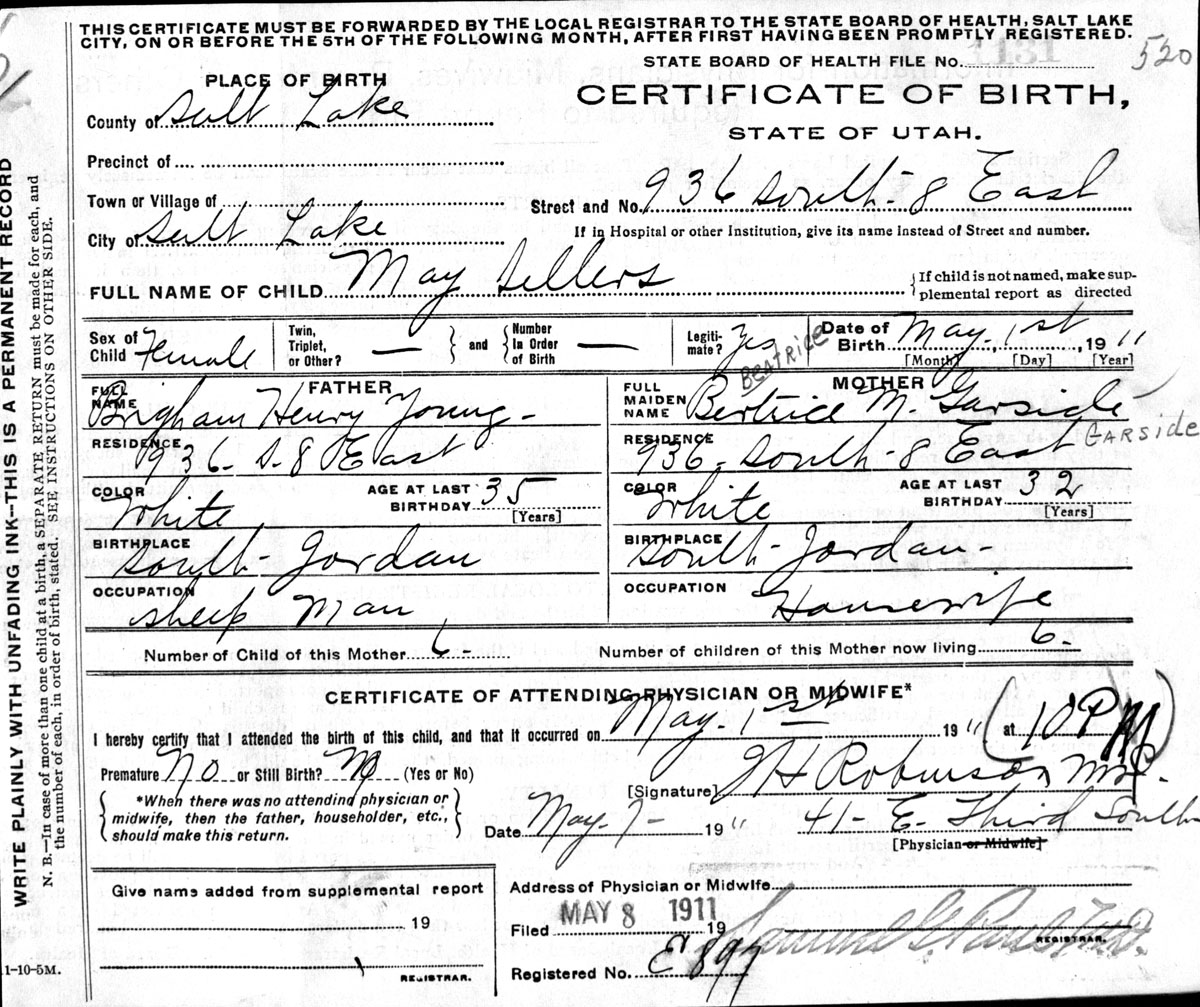 THIS CERTIFICATE MUST BE FORWARDED BY THE LOCAL REGISTRAR TO THE STATE BOARD OF HEALTH, SALT LAKE
CITY, ON OR BEFORE THE 5TH OF THE FOLLOWING MONTH, AFTER FIRST HAVING BEEN PROMPTLY REGISTERED.
STATE BOARD OF HEALTH FILE No. 1131 520
PLACE OF BIRTH
CERTIFICATE OF BIRTH,
STATE OF UTAH.
County of Salt Lake
Precinct of
Town or Village of
Street and No. 936 South - 8 East
City of Salt Lake
If in Hospital or other Institution, give its name instead of Street and number.
FULL NAME OF CHILD May Sellers
{If child is not named, make sup-
plemental report as directed
Sex of Child Female
Twin, Triplet, or Other? —
} and {
Number In Order of Birth —
Legiti-mate? Yes
Date of Birth May. 1st, 1911
[Month] [Day] [Year]
FATHER
FULL NAME Brigham Henry Young -
RESIDENCE 936 - S. 8 East
COLOR White
AGE AT LAST BIRTHDAY 35 [Years]
BIRTHPLACE South - Jordan
OCCUPATION Sheep Man
MOTHER
BEATRICE
FULL MAIDEN NAME Bertrice M. Garside
GARSIDE
RESIDENCE 936 - South - 8 East
COLOR White
AGE AT LAST BIRTHDAY 32 [Years]
BIRTHPLACE South - Jordan -
OCCUPATION Housewife
Number of Child of this Mother 6 -
Number of children of this Mother now living 6 -
CERTIFICATE OF ATTENDING PHYSICIAN OR MIDWIFE*
I hereby certify that I attended the birth of this child, and that it occurred on May. 1st 1911 (at 10 PM)
Premature No or Still Birth? No (Yes or No)
[Signature] J H Robinson MD.
{*When there was no attending physician or
midwife, then the father, householder, etc.,
should make this return.}
Date May - 7 - 1911
41 - E. Third South
[Physician or Midwife]
Give name added from supplemental report
19
REGISTRAR.
Address of Physician or Midwife
Filed MAY 8 1911 19
REGISTRAR.
Registered No. E 897
11-10-5M.
WRITE PLAINLY WITH UNFADING INK--THIS IS A PERMANENT RECORD
N. B.—In case of more than one child at a birth, a SEPARATE RETURN must be made for each, and
the number of each, in order of birth, stated. SEE INSTRUCTIONS ON OTHER SIDE.